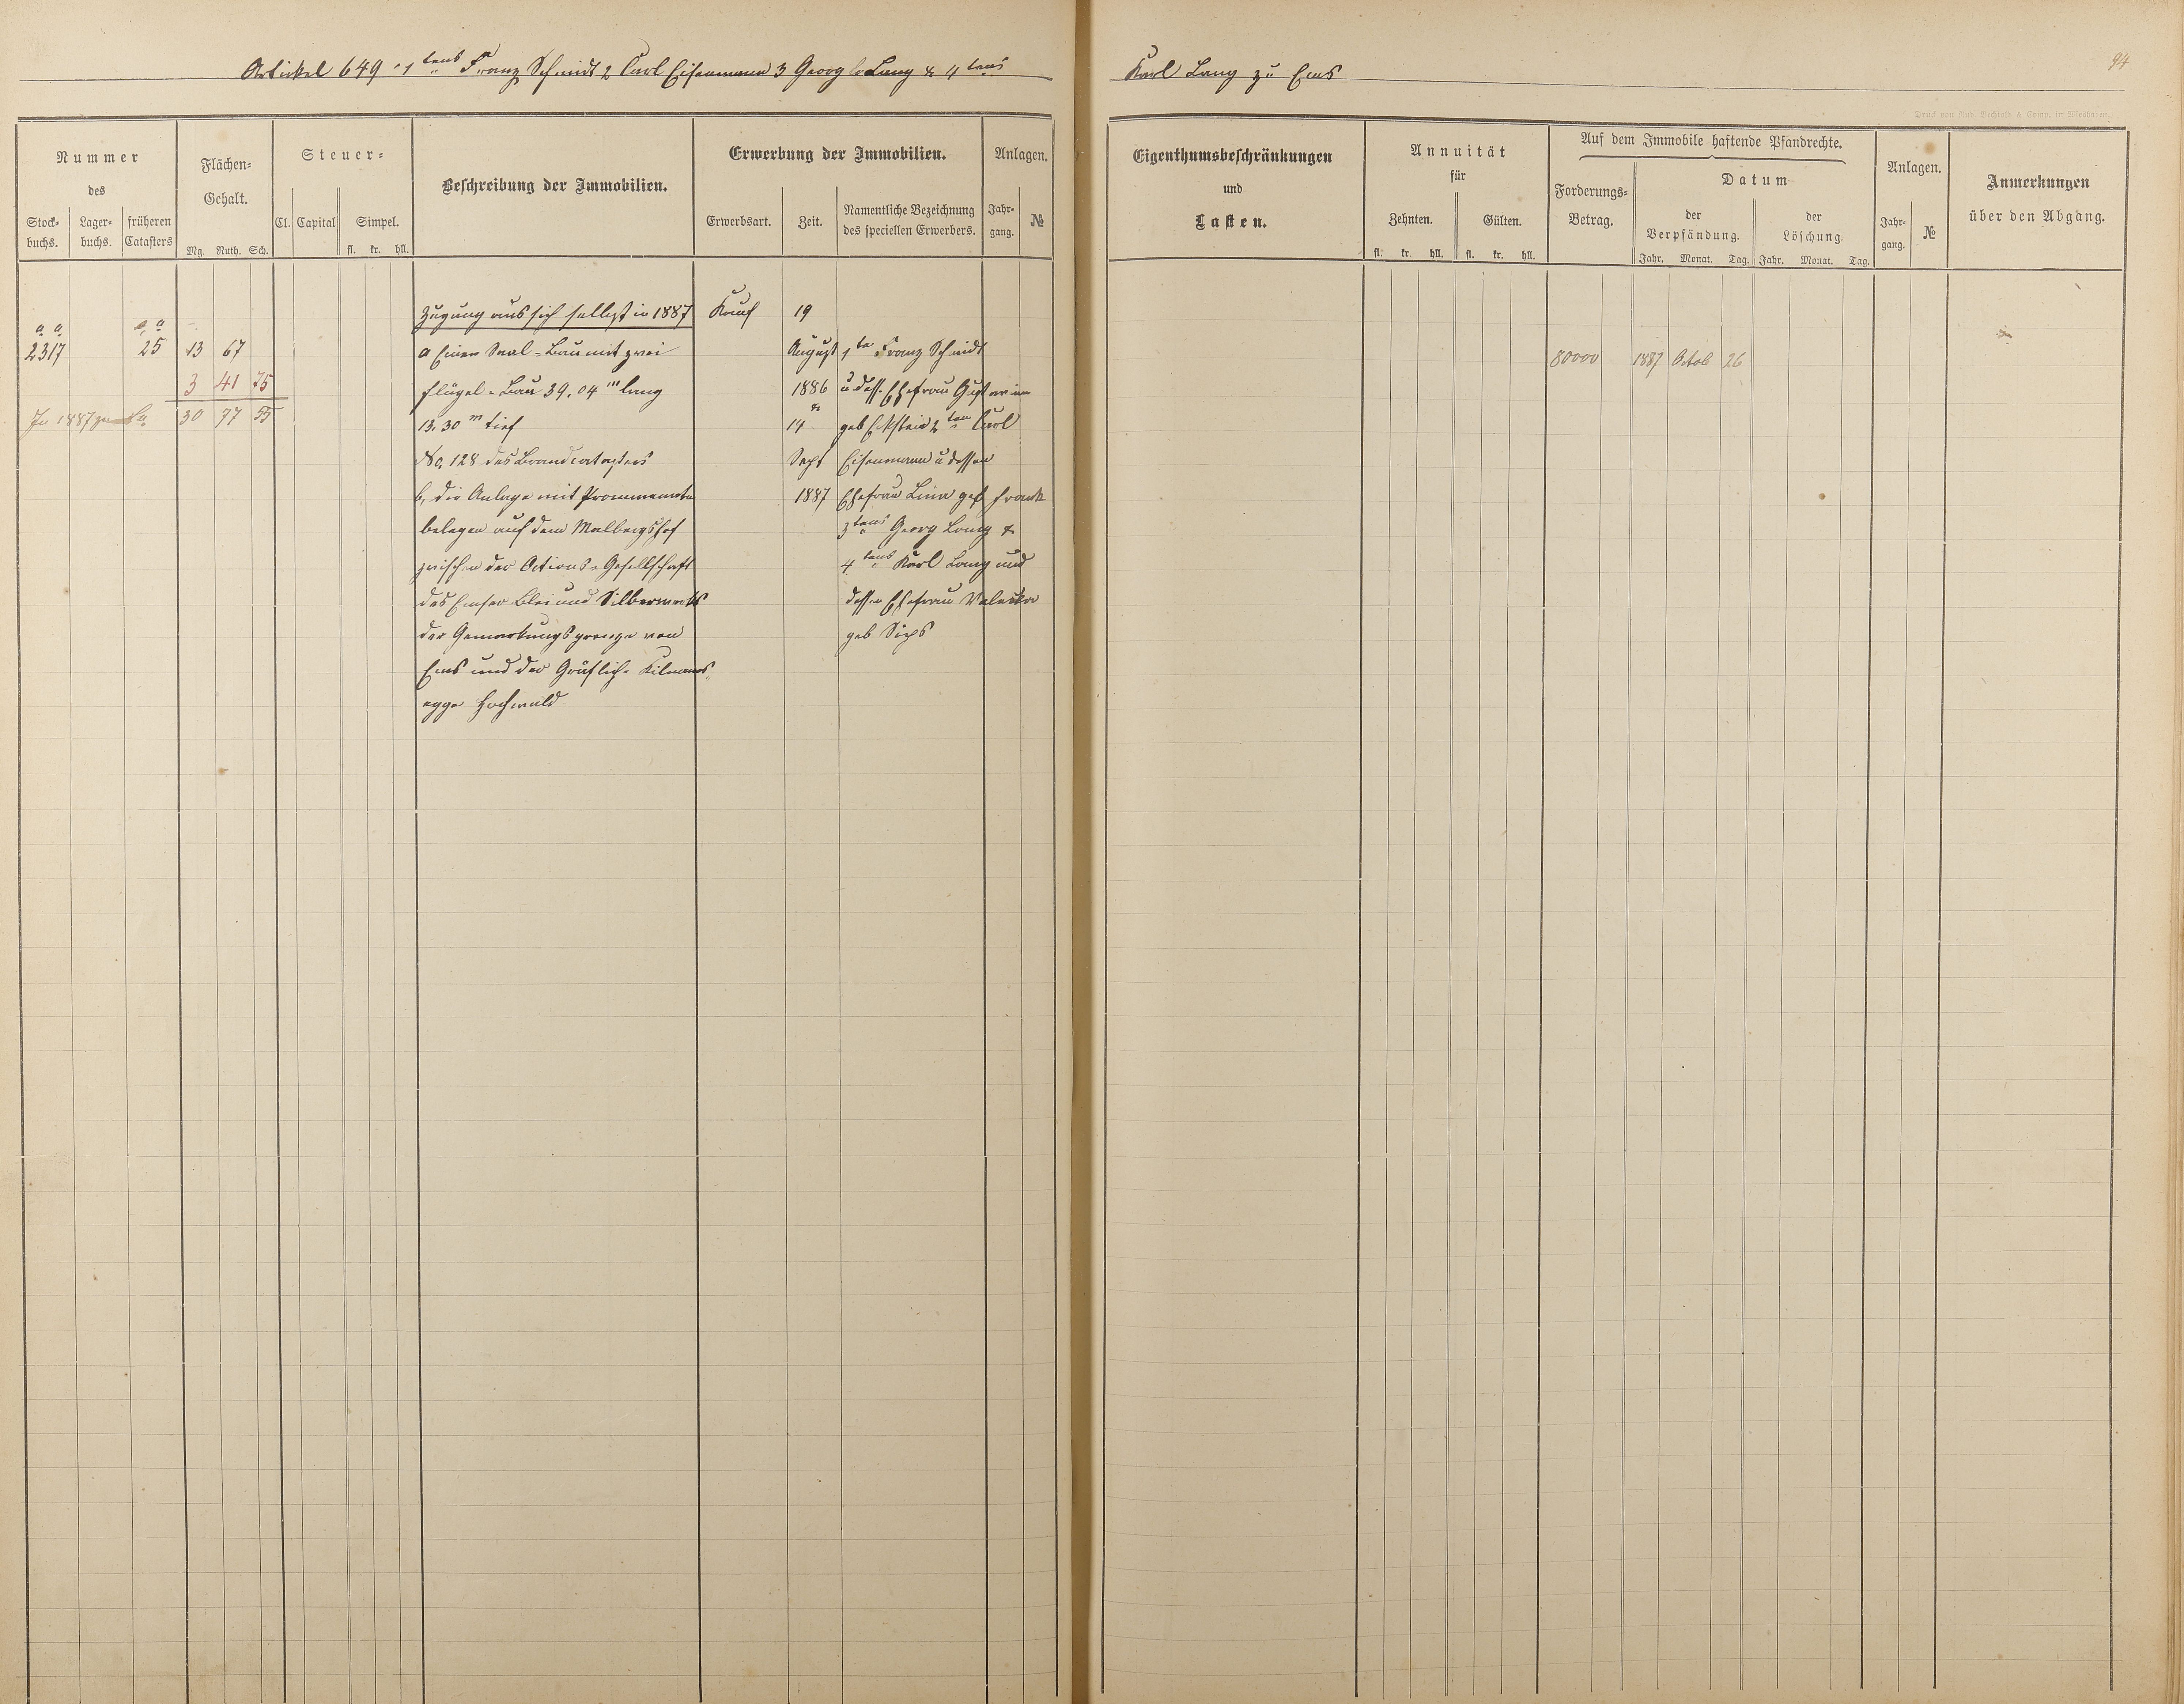 Artickel 649 1tens Franz Schmidt 2 Carl Eisenmann 3 Georg Lang & 4tens Karl Lang zu Ems
94
Nummer
des
Stock-
buchs.
Lager-
buchs.
früheren
Catasters
Flächen-
Gehalt.
Mg. Ruth. Sch.
Steuer-
Cl. Capital Simpel.
fl. kr. hll.
Beschreibung der Immobilien.
Erwerbung der Immobilien.
Erwerbsart. Zeit.
Namentliche Bezeichnung
des speciellen Erwerbers.
Anlagen.
Jahr-
gang.
№
Zugang aus sich selbst in 1887 Kauf 19
a a
2317 25 13 67 a Einen Saal-Bau mit zwei August 1ten Franz Schmidt
3 41 75 Flügel-Bau 39,04 m lang 1886 u dess. Ehefrau
In 1887 30 77 55 13,30 m tief & 14 geb Eckstein 2ten Carl
No. 128 des Brandcatasters Sept Eisenmann u dessen
b, die Anlage mit 1887 Ehefrau Lina geb Frank
belegen auf dem Malbergshof 3tens Georg Lang &
zwischen der Actions-Gesellschaft 4tens Karl Lang und
des Emser Blei und Silberwerks dessen Ehefrau Valeska
der Gemarkungsgrenze von geb Sips
Ems und der Gräflich Kilmanns-
egge Hochwald
Druck von Rud. Bechtold & Comp. in Wiesbaden.
Eigenthumsbeschränkungen
und
Lasten.
Annuität
für
Zehnten. Gülten.
fl. kr. hll. fl. kr. hll.
Auf dem Immobile haftende Pfandrechte.
Forderungs-
Betrag.
Datum
der
Verpfändung.
der
Löschung.
Jahr. Monat. Tag. Jahr. Monat. Tag.
Anlagen.
Jahr-
gang.
№
Anmerkungen
über den Abgang.
80000 1887 Octob 26